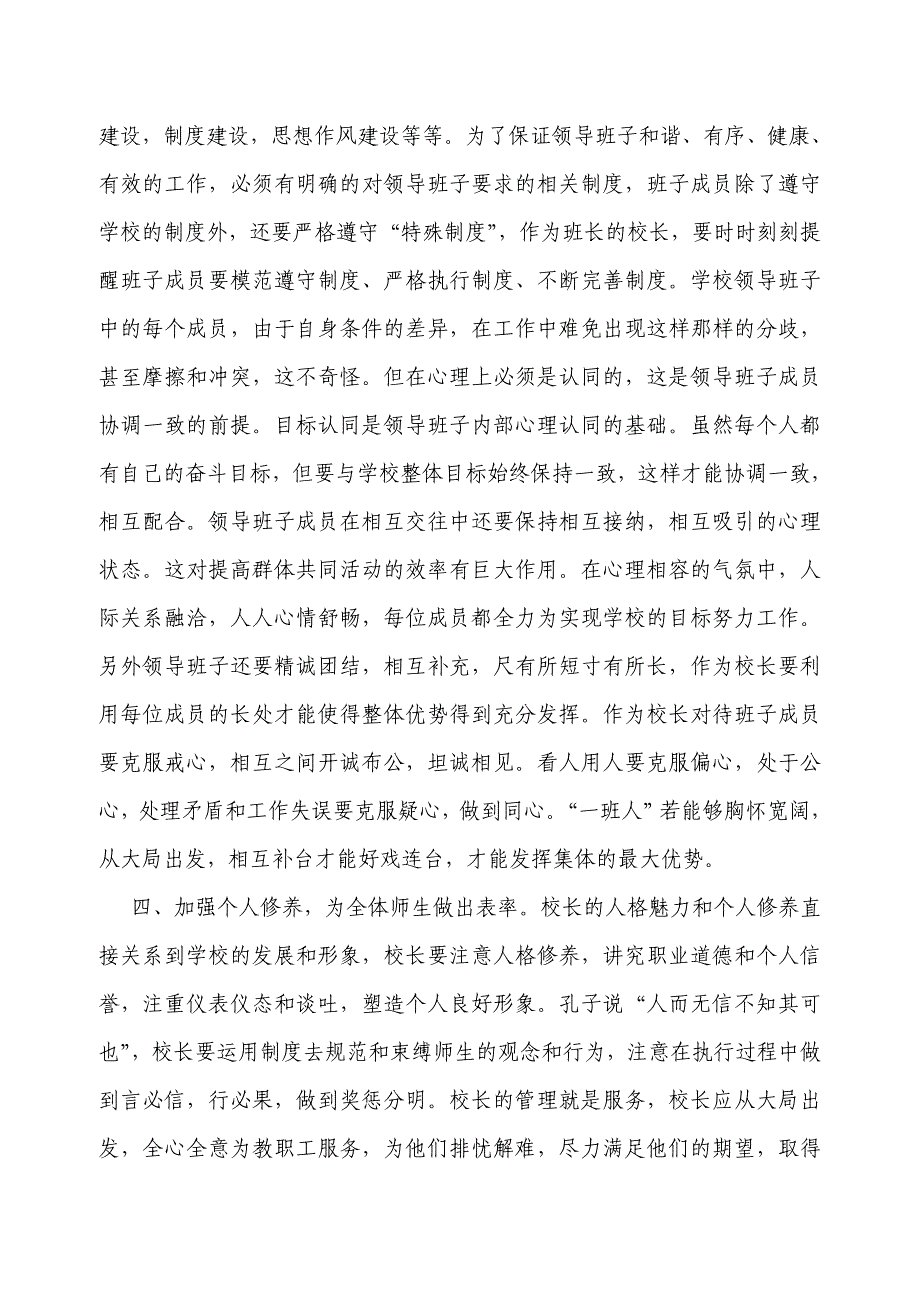 建设，制度建设，思想作风建设等等。为了保证领导班子和谐、有序、健康、
有效的工作，必须有明确的对领导班子要求的相关制度，班子成员除了遵守
学校的制度外，还要严格遵守“特殊制度”，作为班长的校长，要时时刻刻提
醒班子成员要模范遵守制度、严格执行制度、不断完善制度。学校领导班子
中的每个成员，由于自身条件的差异，在工作中难免出现这样那样的分歧，
甚至摩擦和冲突，这不奇怪。但在心理上必须是认同的，这是领导班子成员
协调一致的前提。目标认同是领导班子内部心理认同的基础。虽然每个人都
有自己的奋斗目标，但要与学校整体目标始终保持一致，这样才能协调一致，
相互配合。领导班子成员在相互交往中还要保持相互接纳，相互吸引的心理
状态。这对提高群体共同活动的效率有巨大作用。在心理相容的气氛中，人
际关系融洽，人人心情舒畅，每位成员都全力为实现学校的目标努力工作。
另外领导班子还要精诚团结，相互补充，尺有所短寸有所长，作为校长要利
用每位成员的长处才能使得整体优势得到充分发挥。作为校长对待班子成员
要克服戒心，相互之间开诚布公，坦诚相见。看人用人要克服偏心，处于公
心，处理矛盾和工作失误要克服疑心，做到同心。“一班人”若能够胸怀宽阔，
从大局出发，相互补台才能好戏连台，才能发挥集体的最大优势。
四、加强个人修养，为全体师生做出表率。校长的人格魅力和个人修养直
接关系到学校的发展和形象，校长要注意人格修养，讲究职业道德和个人信
誉，注重仪表仪态和谈吐，塑造个人良好形象。孔子说“人而无信不知其可
也”，校长要运用制度去规范和束缚师生的观念和行为，注意在执行过程中做
到言必信，行必果，做到奖惩分明。校长的管理就是服务，校长应从大局出
发，全心全意为教职工服务，为他们排忧解难，尽力满足他们的期望，取得